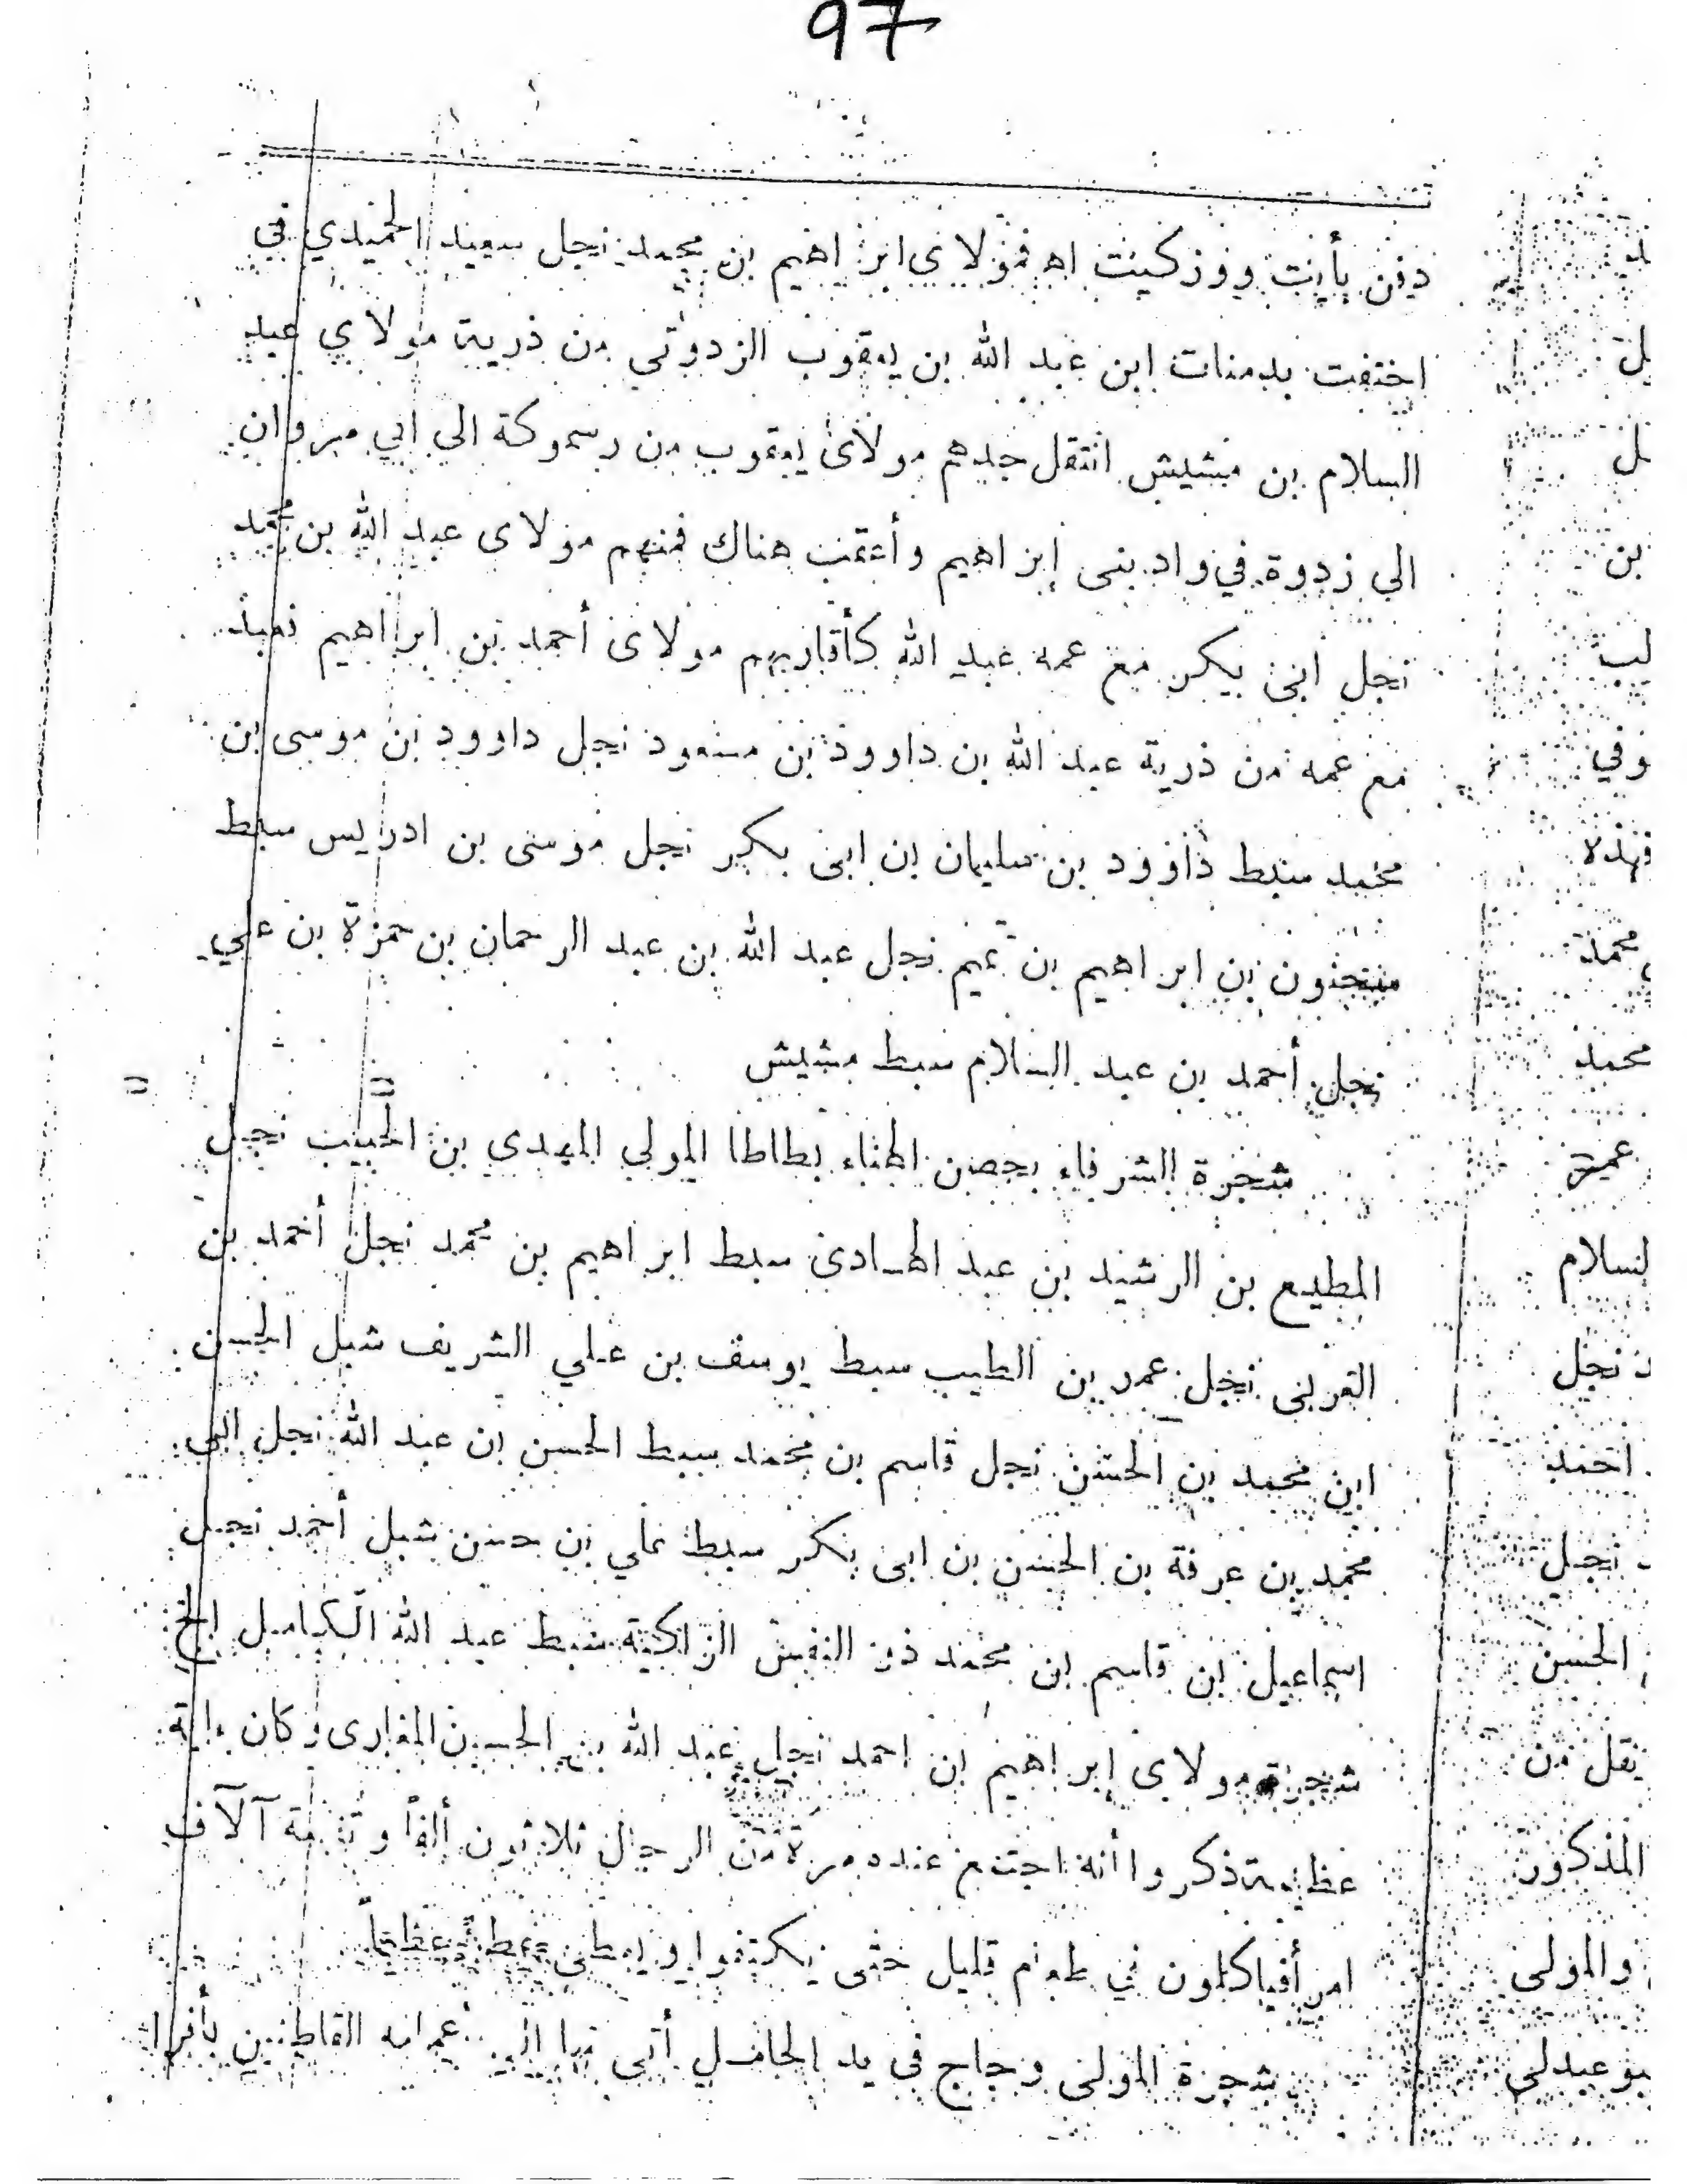 97
دفن بأيت ووزكيت اه فمولاي ابراهيم بن محمد نجل سعيد الحميدي في
اختفت بدمنات ابن عبد الله بن يعقوب الزدوتي من ذرية مولاي عبد
السلام بن مشيش انتقل جدهم مولاى يعقوب من رسموكة الى ابي مروان
الى زدوة في واد بنى إبراهيم وأعقب هناك فمنهم مولاى عبد الله بن محمد
نجل ابى بكر مع عمه عبد الله كأقاربهم مولاى أحمد بن ابراهيم
مع عمه من ذرية عبد الله بن داوود بن مسعود نجل داوود بن موسى بن
محمد سبط داوود بن سليمان بن ابى بكر نجل موسى بن ادريس سبط
سحنون بن ابراهيم بن تميم نجل عبد الله بن عبد الرحمان بن حمزة بن علي
نجل أحمد بن عبد السلام سبط مشيش
شجرة الشرفاء بحصن الهناء بطاطا المولى المهدى بن الحبيب نجل
المطيع بن الرشيد بن عبد الهادى سبط ابراهيم بن محمد نجل أحمد بن
العربى نجل عمر بن الطيب سبط يوسف بن علي الشريف شبل الحسن
ابن محمد بن الحسن نجل قاسم بن محمد سبط الحسن بن عبد الله نجل ابى
محمد بن عرفة بن الحسن بن ابى بكر سبط علي بن حسن شبل أحمد نجل
اسماعيل بن قاسم بن محمد ذو النفس الزاكية سبط عبد الله الكامل الخ
شجرة مولاى إبراهيم بن احمد نجل عبد الله بن الحسين المغارى وكان ءاية
عظيمة ذكروا أنه اجتمع عنده مرة من الرجال ثلاثون ألفاً و آلاف
امرأة فياكلون في طعام قليل حتى يكتفوا و
شجرة المولى وجاج في يد الحافل أتى بها الى أعمامه القاطنين
بن
وفي
فهذه
محمد
محمد
السلام
نجل
احمد
نجل
الحسن
ينقل من
المذكور
والمولى
بوعبدلي